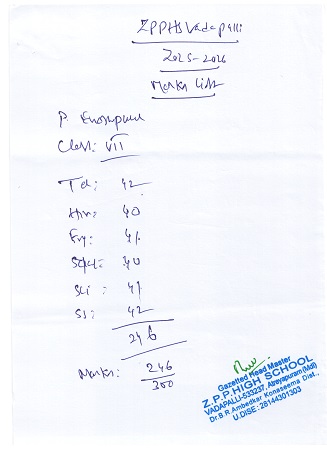 ZPPHS Vadapalli
2025-2026
Marks List
P.
Class: VII
Tel: 42
Hin: 40
Eng: 41
40
Sci: 41
SS: 42
246
Marks: 246/300
Gazetted Head Master
Z.P.P.HIGH SCHOOL
VADAPALLI-533237, Atreyapuram (Mdl)
Dr.B.R Ambedkar Konaseema Dist.,
U.DISE: 28144301303